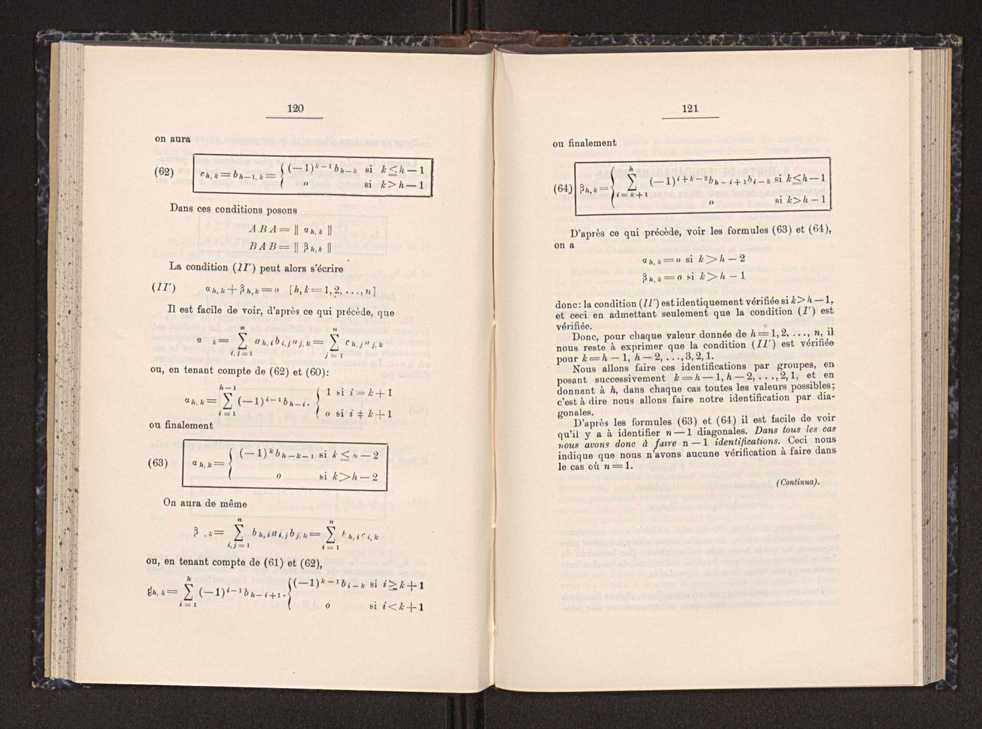 120
on aura
(62) c_{h, k} = b_{h-1, k} = { (-1)^{k-1} b_{h-k} si k ≤ h-1
o si k > h-1
Dans ces conditions posons
A B A = || α_{h, k} ||
B A B = || β_{h, k} ||
La condition (II') peut alors s'écrire
(II') α_{h, k} + β_{h, k} = o [h, k = 1, 2, ..., n]
Il est facile de voir, d'après ce qui précède, que
α_{k} = \sum_{i, j = 1}^{n} a_{h, i} b_{i, j} a_{j, k} = \sum_{j = 1}^{n} c_{h, j} a_{j, k}
ou, en tenant compte de (62) et (60):
α_{h, k} = \sum_{i = 1}^{h-1} (-1)^{i-1} b_{h-i} . { 1 si i = k+1
o si i ≠ k+1
ou finalement
(63) α_{h, k} = { (-1)^k b_{h-k-1} si k ≤ n-2
o si k > h-2
On aura de même
β_{, k} = \sum_{i, j = 1}^{n} b_{h, i} a_{i, j} b_{j, k} = \sum_{i = 1}^{n} b_{h, i} c_{i, k}
ou, en tenant compte de (61) et (62),
β_{h, k} = \sum_{i = 1}^{h} (-1)^{i-1} b_{h-i+1} . { (-1)^{k-1} b_{i-k} si i ≥ k+1
o si i < k+1
121
ou finalement
(64) β_{h, k} = { \sum_{i = k+1}^{h} (-1)^{i+k-2} b_{h-i+1} b_{i-k} si k ≤ h-1
o si k > h-1
D'après ce qui précède, voir les formules (63) et (64),
on a
α_{h, k} = o si k > h-2
β_{h, k} = o si k > h-1
donc: la condition (II') est identiquement vérifiée si k > h-1,
et ceci en admettant seulement que la condition (I') est
vérifiée.
Donc, pour chaque valeur donnée de h = 1, 2, ..., n, il
nous reste à exprimer que la condition (II') est vérifiée
pour k = h-1, h-2, ..., 3, 2, 1.
Nous allons faire ces identifications par groupes, en
posant successivement k = h-1, h-2, ..., 2, 1, et en
donnant à h, dans chaque cas toutes les valeurs possibles;
c'est à dire nous allons faire notre identification par dia-
gonales.
D'après les formules (63) et (64) il est facile de voir
qu'il y a à identifier n-1 diagonales. Dans tous les cas
nous avons donc à faire n-1 identifications. Ceci nous
indique que nous n'avons aucune vérification à faire dans
le cas où n = 1.
(Continua).